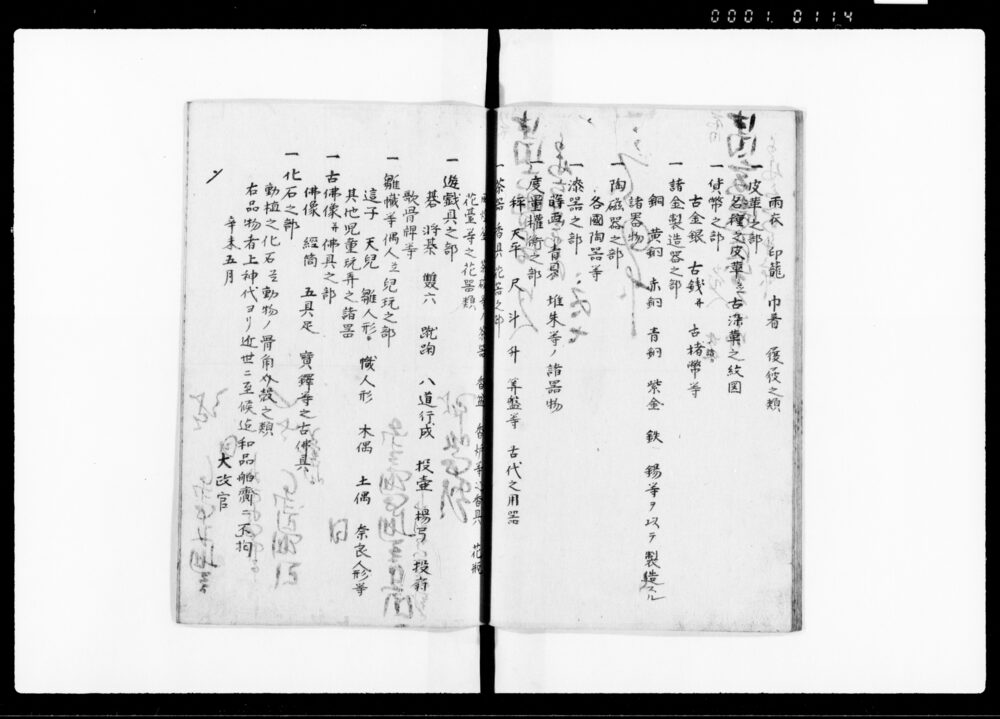 0001.0114
雨衣 印籠 巾着 屐履之類
一皮革之部
各種之皮革並古染革之紋図
一貨幣之部
古金銀 古銭並 古楮幣等
一諸金製造器之部
銅 黄銅 赤銅 青銅 紫金 鉄 錫等ヲ以テ製造スル
諸器物
一陶磁器之部
各國陶器等
一漆器之部
蒔画 青貝 堆朱等ノ諸器物
一度量權衡之部
秤 天平 尺 斗 升 算盤等 古代之用器
一茶器 香具 花器之部
花臺等之花器類
一遊戯具之部
碁 将棊 雙六 蹴鞠 八道行成 投壷 楊弓 投扇
歌骨牌等
一雛幟等偶人並兒玩之部
這子 天兒 雛人形 幟人形 木偶 土偶 奈良人形等
其他児童玩弄之諸器
一古佛像並佛具之部
佛像 經筒 五具足 寳鐸等之古佛具
一化石之部
動植之化石並動物ノ骨角介殻之類
右品物者上神代ヨリ近世ニ至候迄和品舶齎ニ不拘
辛未五月
大政官